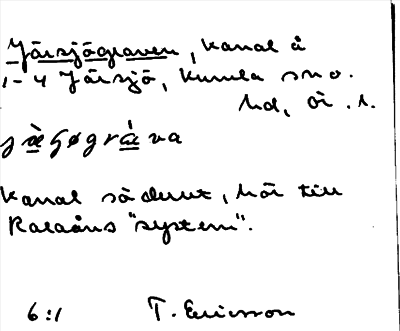 Järsjögraven, kanal å
1-4 Järsjö, Kumla sn o.
hd, Ör. l.
kanal söderut, hör till
Ralaåns "system".
6:1 T. Ericsson